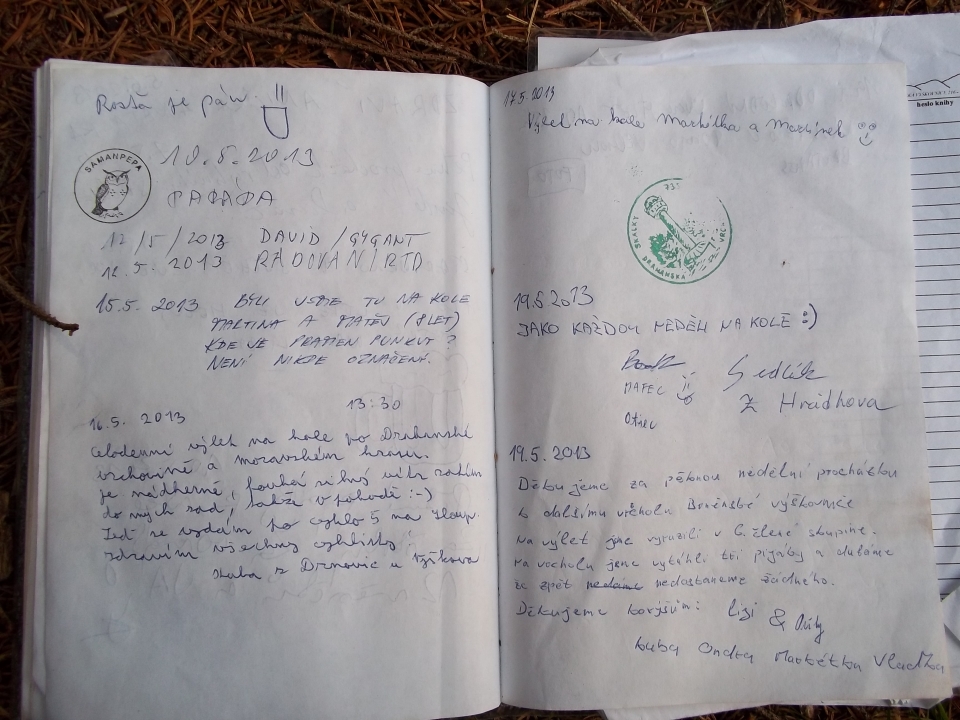 Rosťa je pán.
SAMANPEPA
10.5.2013
PARÁDA
12/5/2013 DAVID/GYGANT
12.5.2013 RADOVAN/RTD
15.5.2013 BYLI JSME TU NA KOLE
MARTINA A MATĚJ (8 LET)
KDE JE PRAMEN PUNKVY?
NENÍ NIKDE OZNAČENÝ.
13:30
16.5. 2013
Celodenní výlet na kole po Drahanské
vrchovině a moravském krasu.
je nádherně, fouká silný vítr
do mých zad, takže v pohodě :-)
Teď se vydám po cyklo 5 na
Zdravím všechny cyklisty!
Kuba z Drnovic u
17.5.2013
Výlet na kole Markétka a Martínek
SKALKY
DRAHANSKÁ VRCH
731
19.5 2013
JAKO KAŽDOU NEDĚLI NA KOLE :)
MATEJ
Otec
Sedlák
Z Hrádkova
19.5.2013
Děkujeme za pěknou nedělní procházku
k dalšímu vrcholu výškovnice
na výlet jsme vyrazili v 6. členné skupině.
na vrcholu jsme vytáhli tři a doufáme
že zpět nedáme nedostaneme žádného.
Děkujeme borjšům: Lízi &
Kuba Ondra Markétka Vlaďka
heslo knihy